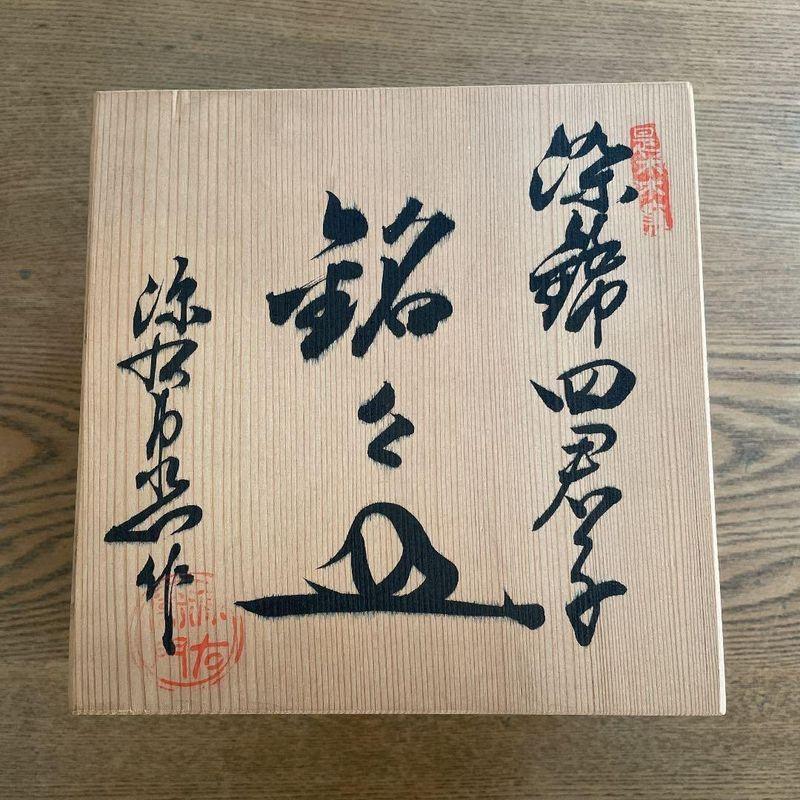 染錦四君子
銘々皿
源右衛門窯作